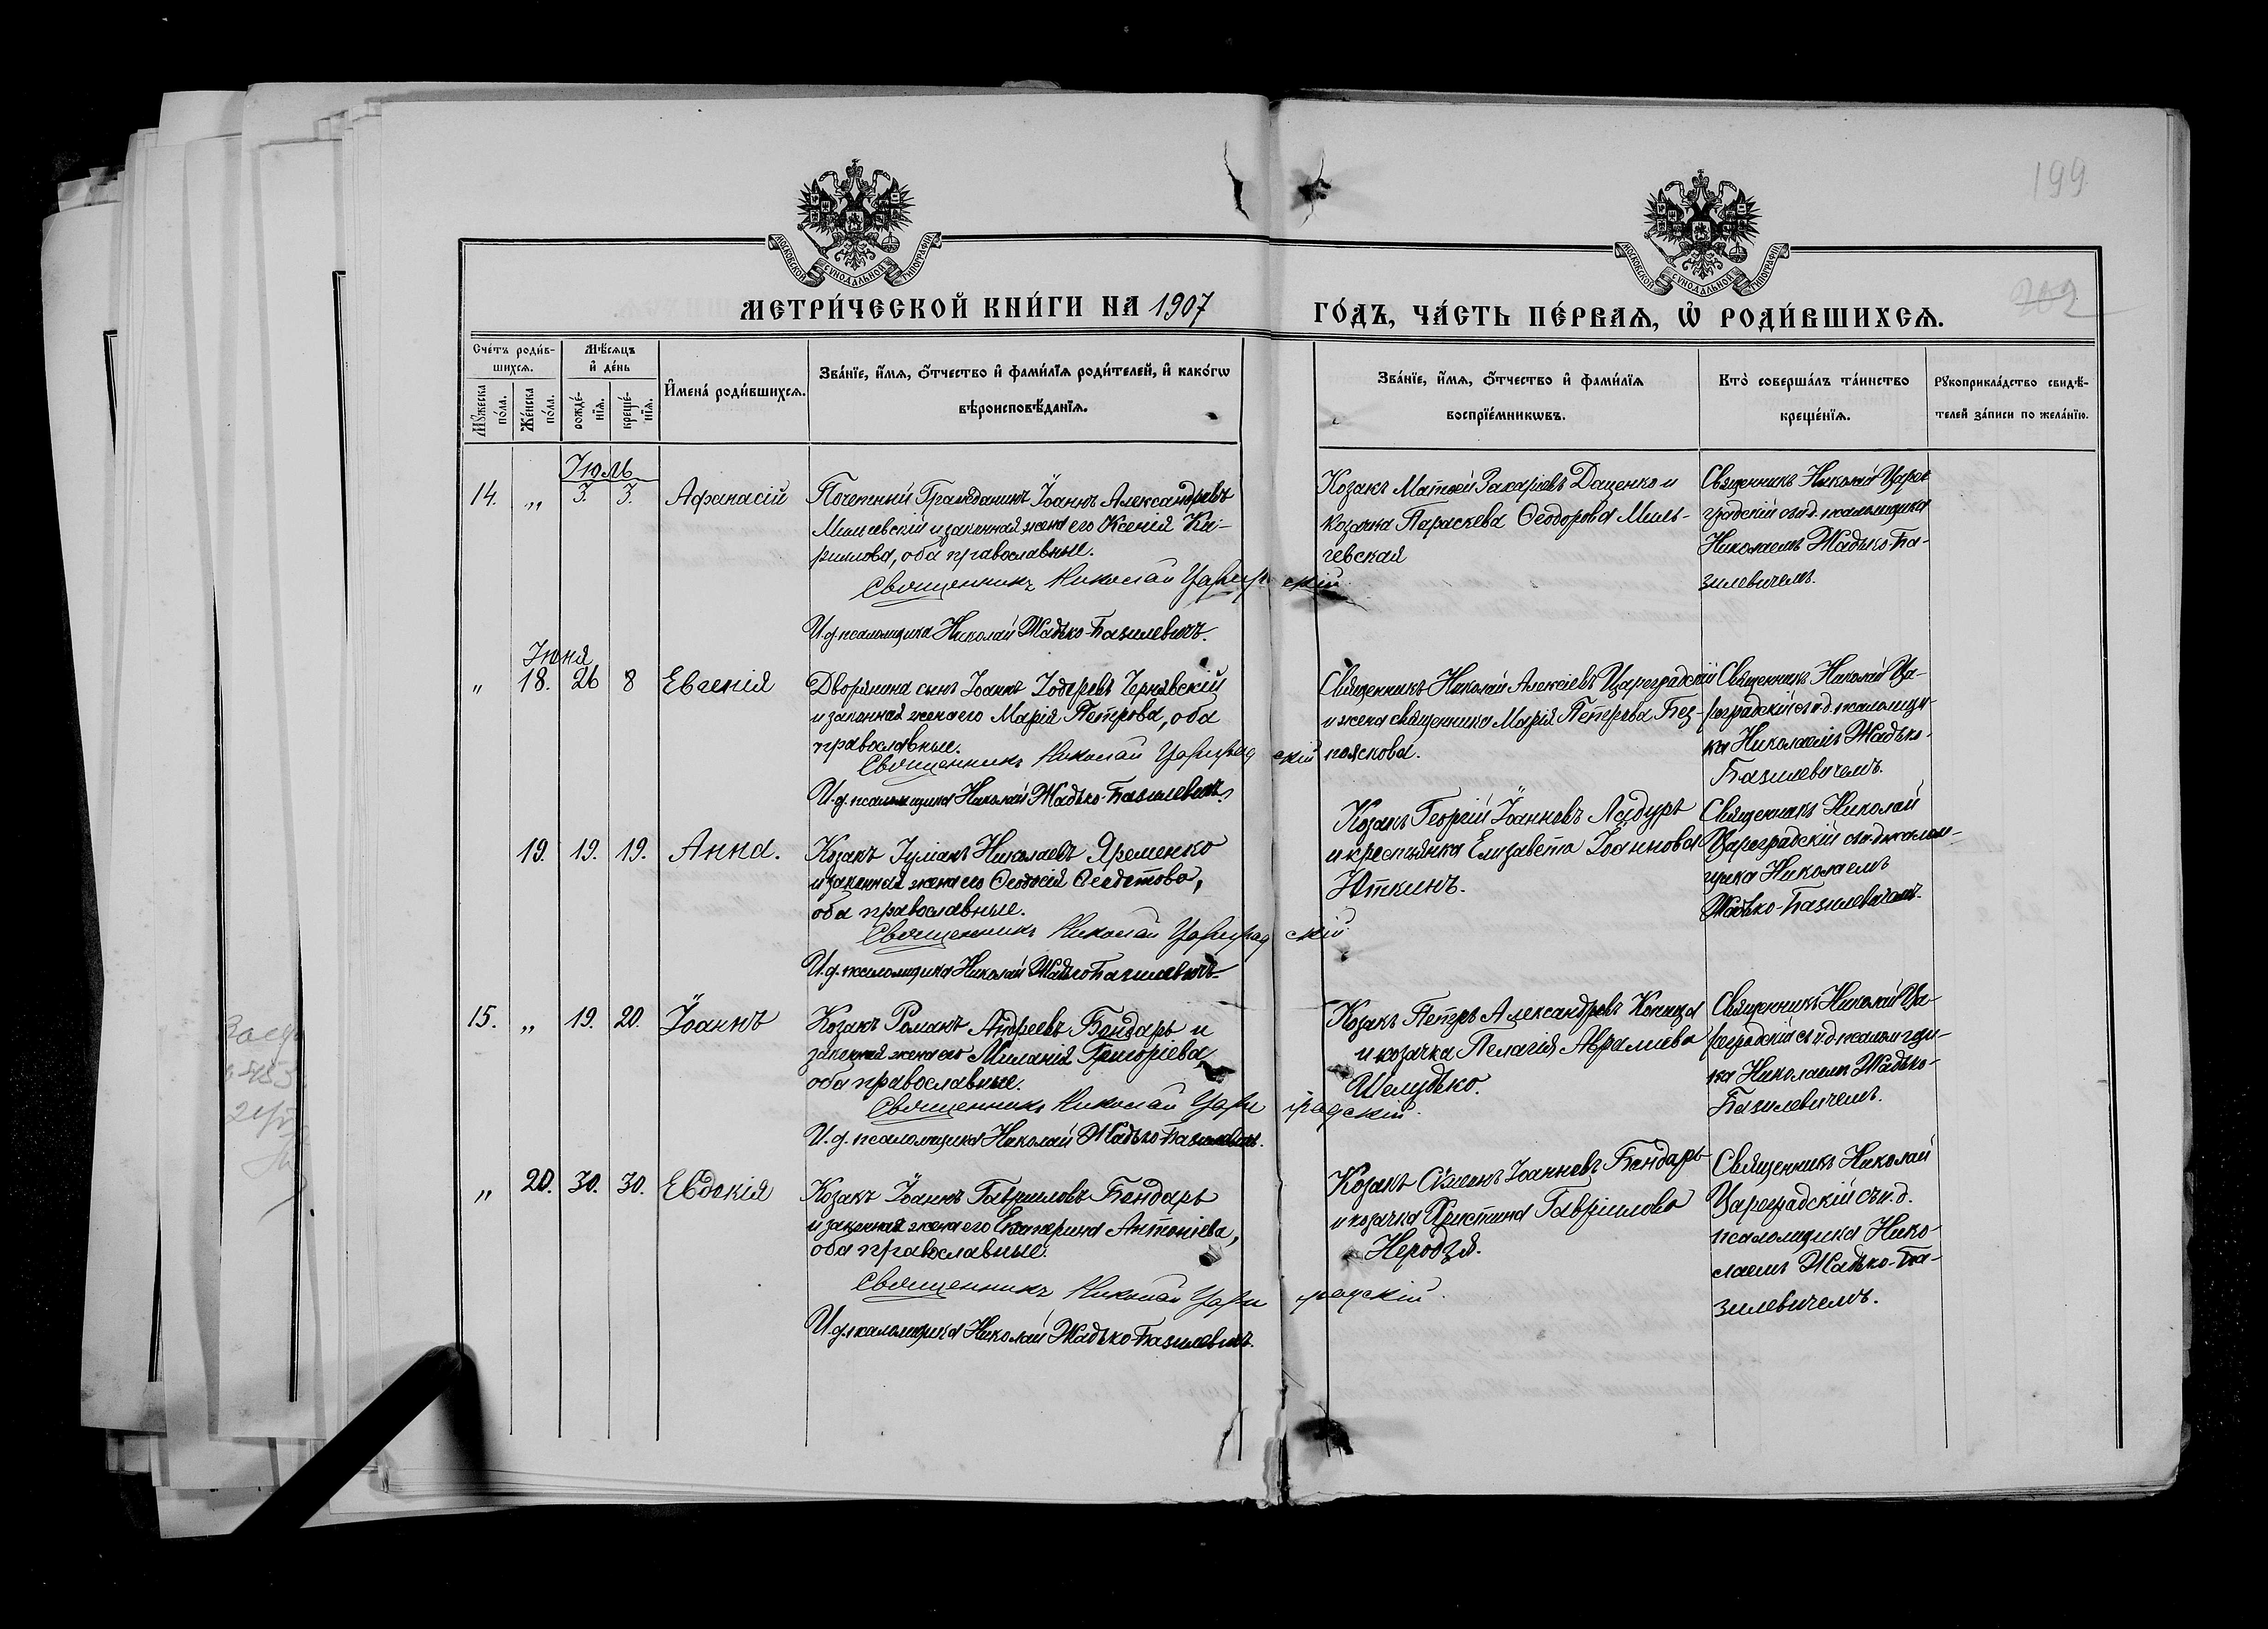 199
202
МОСКОВСКОЙ СУНОДАЛЬНОЙ ТИПОГРАФІИ
МОСКОВСКОЙ СУНОДАЛЬНОЙ ТИПОГРАФІИ
МЕТРИ́ЧЕСКОЙ КНИ́ГИ НА 1907
ГО́ДЪ, ЧА́СТЬ ПЕ́РВАЯ, Ѡ РОДИ́ВШИХСЯ.
Сче́тъ роди́в-
шихся.
Мꙋ́жеска
по́ла.
Же́нска
по́ла.
Мѣ́сяцъ
и҆ де́нь
рожде́-
нїя.
креще́-
нїя.
И҆мена̀ роди́вшихся.
Зва́нїе, и҆́мя, ѻ҆́тчество и҆ фами́лїя роди́телей, и҆ како́гѡ
вѣроисповѣ́данїя.
Зва́нїе, и҆́мя, ѻ҆́тчество и҆ фами́лїя
воспрїе́мникѡвъ.
Кто̀ соверша́лъ та́инство
креще́нїя.
Рꙋкоприкла́дство свидѣ́-
телей за́писи по жела́нїю.
Іюль
14. „ 3. 3. Афанасій
Почетный Гражданинъ Іоаннъ Александровъ
и законная жена его Ксенія Ки-
риллова, оба православные.
Священникъ Николай Цареградскій
И.д. псаломщика Николай Жадько-Базилевичъ.
Козакъ Матѳей Захаріевъ Даценко и
козачка Параскева Ѳеодорова Миль-
чевская
Священникъ Николай Царе-
градскій съ и.д. псаломщика
Николаемъ Жадько-Ба-
зилевичемъ.
Іюня
„ 18. 26 8 Евгенія
Дворянина сынъ Іоаннъ Чернявскій
и законная жена его Марія Петрова, оба
православные.
Священникъ Николай Цареградскій
И.д. псаломщика Николай Жадько-Базилевичъ.
Священникъ Николай Алексіевъ Цареградскій
и жена священника Марія Петрова Без-
пояскова.
Священникъ Николай Ца-
реградскій съ и.д. псаломщи-
ка Николаемъ Жадько-
Базилевичемъ.
19. 19. 19. Анна.
Козакъ Іуліанъ Николаевъ Яременко
и законная жена его Ѳеодосія Ѳеодотова,
оба православные.
Священникъ Николай Цареградскій
И.д. псаломщика Николай Жадько-Базилевичъ
Козакъ Георгій Іоанновъ Лядуръ
и крестьянка Елизавета Іоаннова
Иткинъ.
Священникъ Николай
Цареградскій съ и.д. псалом-
щика Николаемъ
Жадько-Базилевичемъ.
15. „ 19. 20. Іоаннъ
Козакъ Романъ Андреевъ Бондарь и
законная жена его Миланія Григоріева,
оба православные.
Священникъ Николай Цареградскій.
И.д. псаломщика Николай Жадько-Базилевичъ.
Козакъ Петръ Александровъ Коница
и козачка Пелагія Авраміева
Шелудько.
Священникъ Николай Ца-
реградскій съ и.д. псаломщи-
ка Николаемъ Жадько-
Базилевичемъ.
„ 20. 30. 30. Евдокія
Козакъ Іоаннъ Гавріиловъ Бондарь
и законная жена его Екатерина Антоніева,
оба православные.
Священникъ Николай Цареградскій.
И.д. псаломщика Николай Жадько-Базилевичъ.
Козакъ Симеонъ Іоанновъ Бондарь
и козачка Христина Гавріилова
Неродзя.
Священникъ Николай
Цареградскій съ и.д.
псаломщика Нико-
лаемъ Жадько-Ба-
зилевичемъ.